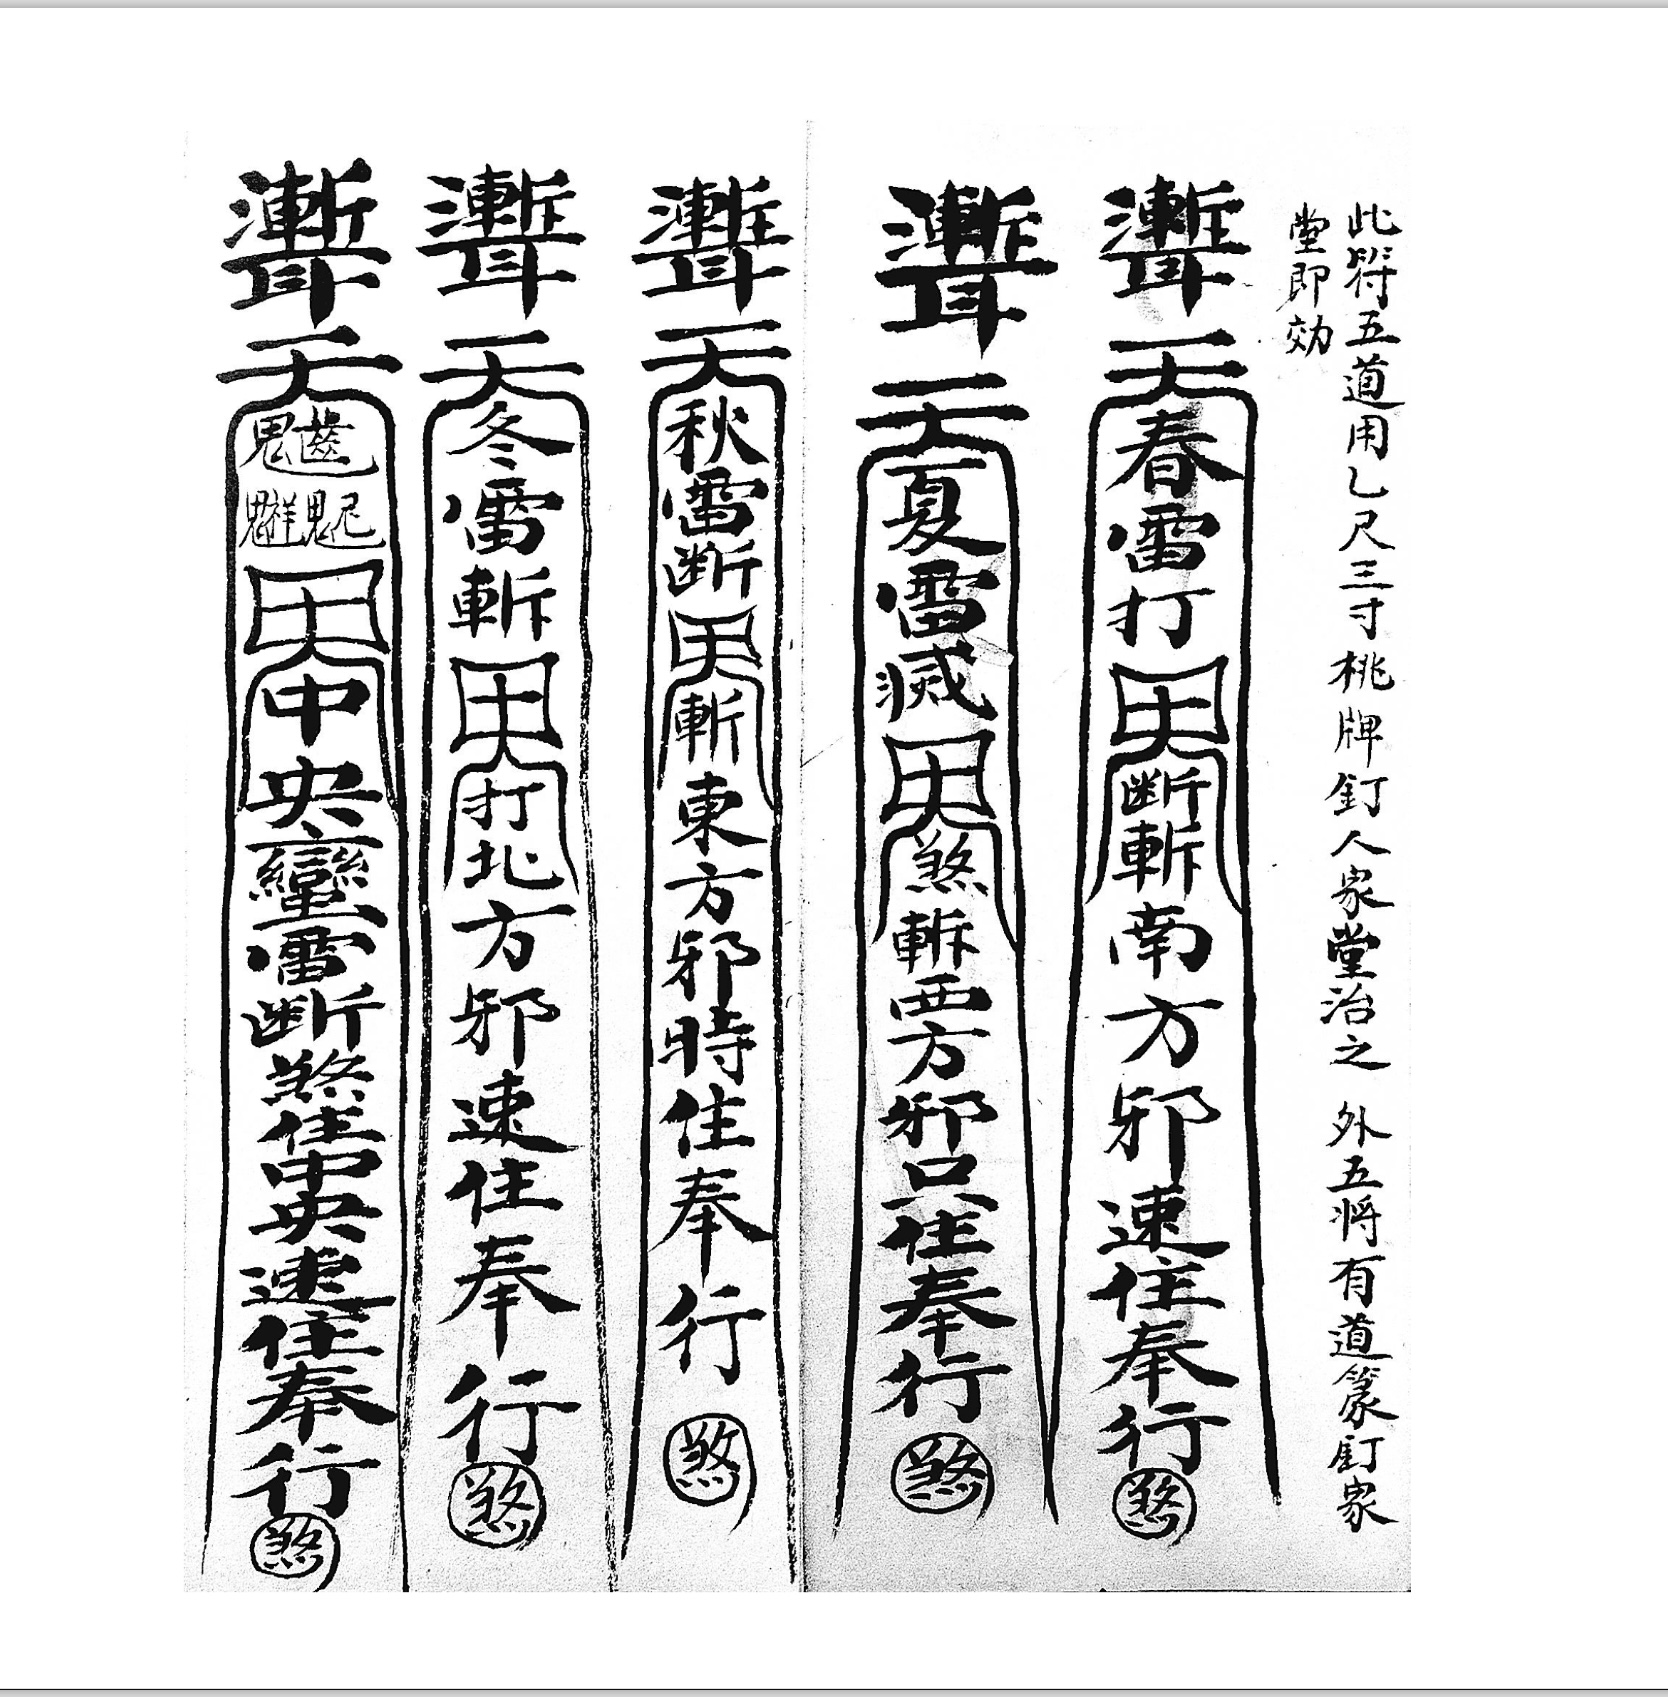 此符五道用乙尺三寸桃牌釘人家堂治之 外五將有道篆釘家
堂即効
天春雷打断斬南方邪速住奉行煞
天夏雷滅煞斬西方邪只住奉行煞
天秋雷断斬東方邪時住奉行煞
天冬雷斬打北方邪速住奉行煞
天中央雷断煞住中央速住奉行煞